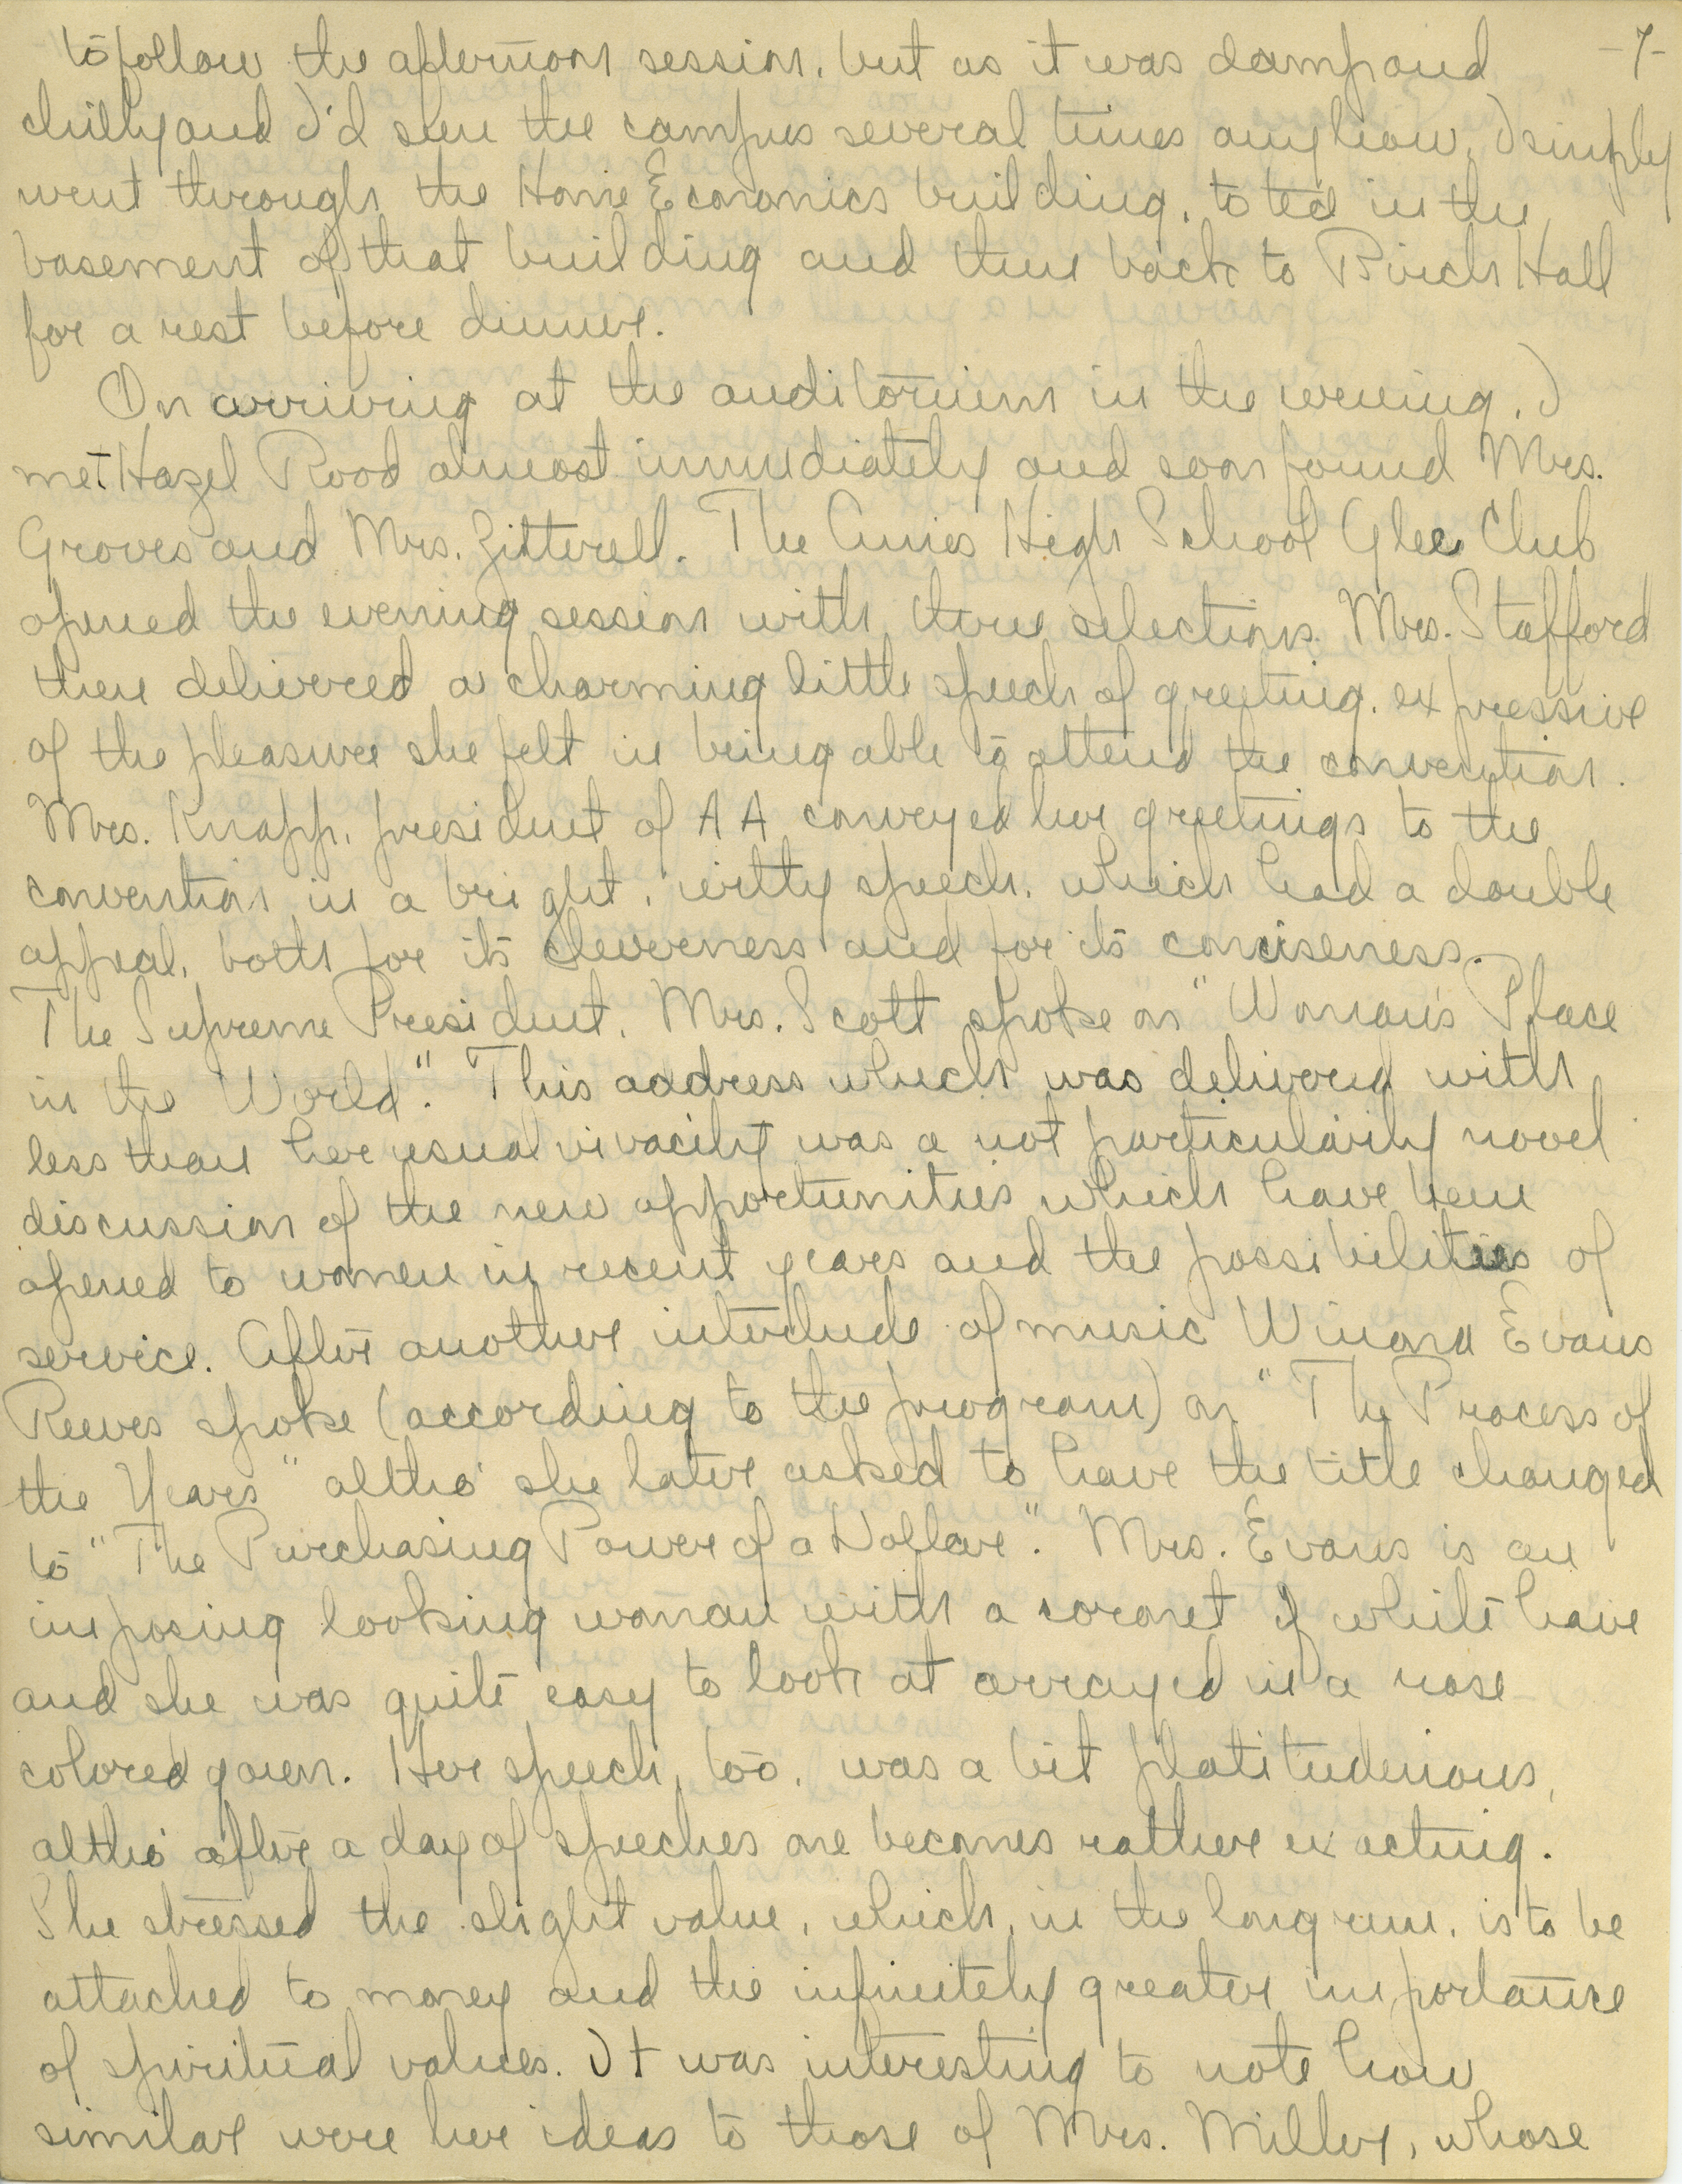 to follow the afternoon session, but as it was damp and -7-
chilly and I'd seen the campus several times anyhow, I simply
went through the Home Economics building, to tea in the
basement of that building and then back to Birch Hall
for a rest before dinner.
On arriving at the auditorium in the evening, I
met Hazel Rood almost immediately and soon found Mrs.
Groves and Mrs. Zitterell. The Ames High School Glee Club
opened the evening session with three selections. Mrs. Stafford
then delivered a charming little speech of greeting, expressive
of the pleasure she felt in being able to attend the convention.
Mrs. Knapp, president of A A conveyed her greetings to the
convention in a bright, witty speech, which had a double
appeal, both for its cleverness and for its conciseness.
The Supreme President, Mrs. Scott spoke on "Woman's Place
in the World". This address which was delivered with
less than her usual vivacity was a not particularly novel
discussion of the new opportunities which have been
opened to women in recent years and the possibilities of
service. After another interlude of music Winona Evans
Reeves spoke (according to the program) on "The Process of
the Years" altho' she later asked to have the title changed
to "The Purchasing Power of a Dollar". Mrs. Evans is an
imposing looking woman with a coronet of white hair
and she was quite easy to look at arrayed in a rose
colored gown. Her speech, too, was a bit platitudenious,
altho' after a day of speeches one becomes rather exacting.
She stressed the slight value, which, in the long run, is to be
attached to money and the infinitely greater importance
of spiritual values. It was interesting to note how
similar were her ideas to those of Mrs. Miller, whose